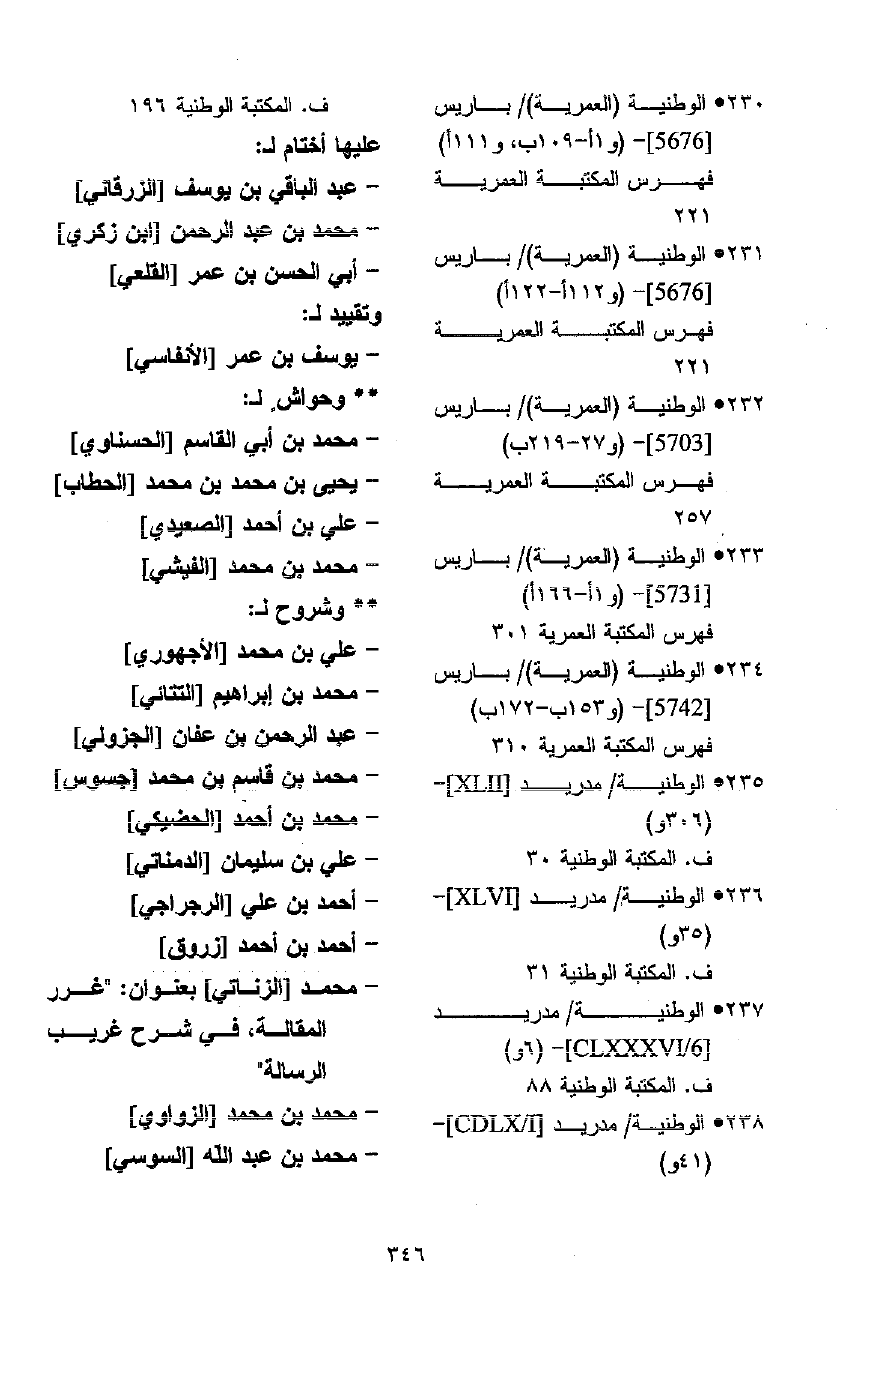 ٢٣٠• الوطنية (العمرية)/ باريس
[5676]- (و١أ-١٠٩ب، و١١١أ)
فهرس المكتبة العمرية
٢٢١
٢٣١• الوطنية (العمرية)/ باريس
[5676]- (و١١٢أ-١٢٢أ)
فهرس المكتبة العمرية
٢٢١
٢٣٢• الوطنية (العمرية)/ باريس
[5703]- (و٢٧-٢١٩ب)
فهرس المكتبة العمرية
٢٥٧
٢٣٣• الوطنية (العمرية)/ باريس
[5731]- (و١أ-١٦٦أ)
فهرس المكتبة العمرية ٣٠١
٢٣٤• الوطنية (العمرية)/ باريس
[5742]- (و١٥٣ب-١٧٢ب)
فهرس المكتبة العمرية ٣١٠
٢٣٥• الوطنية/ مدريد [XLII]-
(٣٠٦و)
ف. المكتبة الوطنية ٣٠
٢٣٦• الوطنية/ مدريد [XLVI]-
(٣٥و)
ف. المكتبة الوطنية ٣١
٢٣٧• الوطنية/ مدريد
[CLXXXVI/6]- (٦و)
ف. المكتبة الوطنية ٨٨
٢٣٨• الوطنية/ مدريد [CDLX/I]-
(٤١و)
ف. المكتبة الوطنية ١٩٦
عليها أختام لـ:
- عبد الباقي بن يوسف [الزرقاني]
- محمد بن عبد الرحمن [ابن زكري]
- أبي الحسن بن عمر [القلعي]
وتقييد لـ:
- يوسف بن عمر [الأنفاسي]
** وحواشٍ لـ:
- محمد بن أبي القاسم [الحسناوي]
- يحيى بن محمد بن محمد [الحطاب]
- علي بن أحمد [الصعيدي]
- محمد بن محمد [الفيشي]
** وشروح لـ:
- علي بن محمد [الأجهوري]
- محمد بن إبراهيم [التتائي]
- عبد الرحمن بن عفان [الجزولي]
- محمد بن قاسم بن محمد [جسوس]
- محمد بن أحمد [الحضيكي]
- علي بن سليمان [الدمناتي]
- أحمد بن علي [الرجراجي]
- أحمد بن أحمد [زروق]
- محمد [الزناتي] بعنوان: "غرر
المقالة، في شرح غريب
الرسالة"
- محمد بن محمد [الزواوي]
- محمد بن عبد الله [السوسي]
٣٤٦